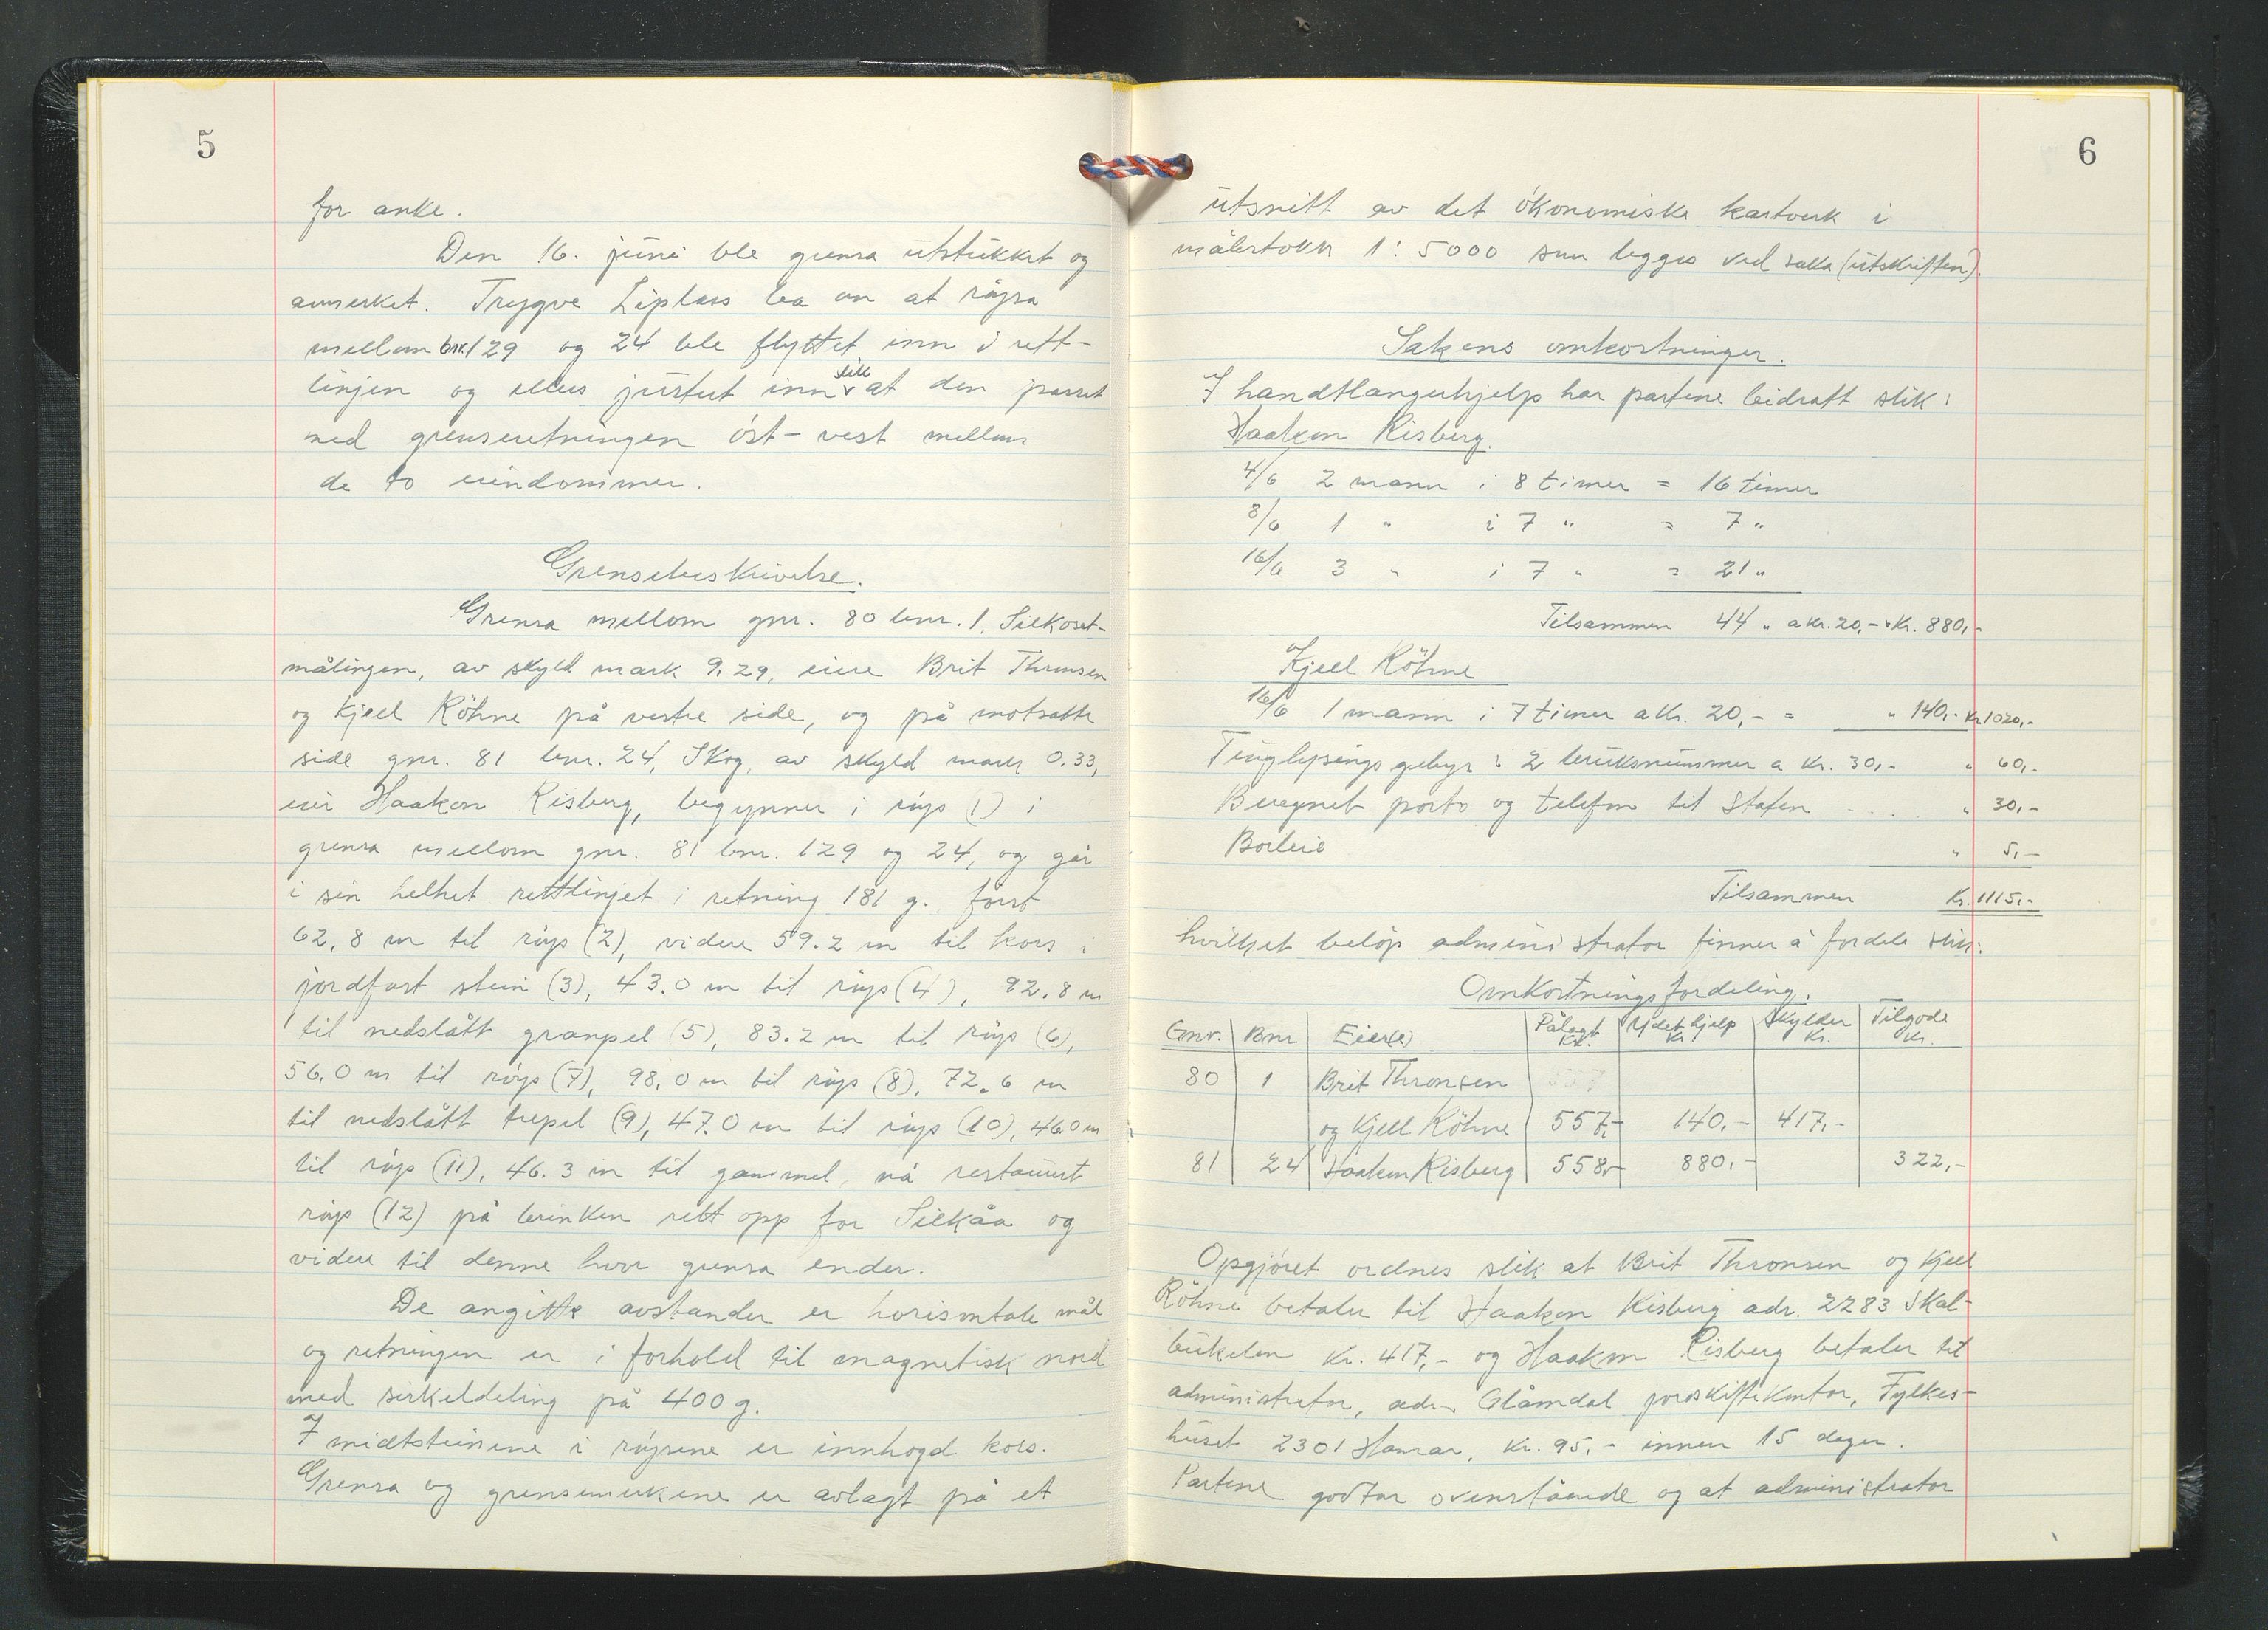 5
for anke.
Den 16. juni ble grensa utstukket og
avmerket. Trygve Liplass ba om at røysa
mellom bnr. 129 og 24 ble flyttet inn i rett-
linjen og ellers justert inn slik at den passet
med grenseretningen öst - vest mellom
de to eiendommer.
Grensebeskrivelse.
Grensa mellom gnr. 80 bnr. 1, Silkoset-
målingen, av skyld mark 9.29, eiere Brit Thronsen
og Kjell Röhne på vestre side, og på motsatte
side gnr. 81 bnr. 24, Skog, av skyld mark 0.33,
eier Haakon Risberg, begynner i röys (1) i
grensa mellom gnr. 81 bnr. 129 og 24, og går
i sin helhet rettlinjet i retning 181 g. först
62,8 m til röys (2), videre 59.2 m til kors i
jordfast stein (3), 43.0 m til röys (4), 92.8 m
til nedslått granpel (5), 83.2 m til röys (6),
56,0 m til röys (7), 98,0 m til röys (8), 72.6 m
til nedslått trepel (9), 47.0 m til röys (10), 46.0 m
til röys (11), 46.3 m til gammel, nå restaurert
röys (12) på brinken rett opp for Silkåa og
videre til denne hvor grensa ender.
De angitte avstander er horisontale mål
og retningen er i forhold til magnetisk nord
med sirkeldeling på 400 g.
I midtsteinene i röysene er innhogd kors.
Grensa og grensemerkene er avlagt på et
6
utsnitt av det ökonomiske kartverk i
målestokk 1:5000 som legges ved saka (utskriften).
Sakens omkostninger.
I handtlangerhjelp har partene bidratt slik:
Haakon Risberg.
4/6 2 mann i 8 timer = 16 timer
8/6 1 " i 7 " = 7 "
16/6 3 " i 7 " = 21 "
Tilsammen 44 " a kr. 20,- = Kr. 880,-
Kjell Röhne
16/6 1 mann i 7 timer a kr. 20,- = " 140,- Kr. 1020,-
Tinglysingsgebyr: 2 bruksnummer a kr. 30,- " 60,-
Beregnet porto og telefon til Staten . . . " 30,-
Borleie " 5,-
Tilsammen Kr. 1115,-
hvilket belöp administrator finner å fordele slik:
Omkostningsfordeling.
Gnr. Bnr Eier(e) Pålagt Kr. Ydet hjelp Kr Skylder Kr. Tilgode Kr.
80 1 Brit Thronsen
og Kjell Röhne 557,- 140,- 417,-
81 24 Haakon Risberg 558,- 880,- 322,-
Opgjöret ordnes slik at Brit Thronsen og Kjell
Röhne betaler til Haakon Risberg adr. 2283 Skal-
bukelen kr. 417,- og Haakon Risberg betaler til
administrator, adr. Glåmdal jordskiftekontor, Fylkes-
huset 2301 Hamar, kr. 95,- innen 15 dager.
Partene godtar ovenstående og at administrator